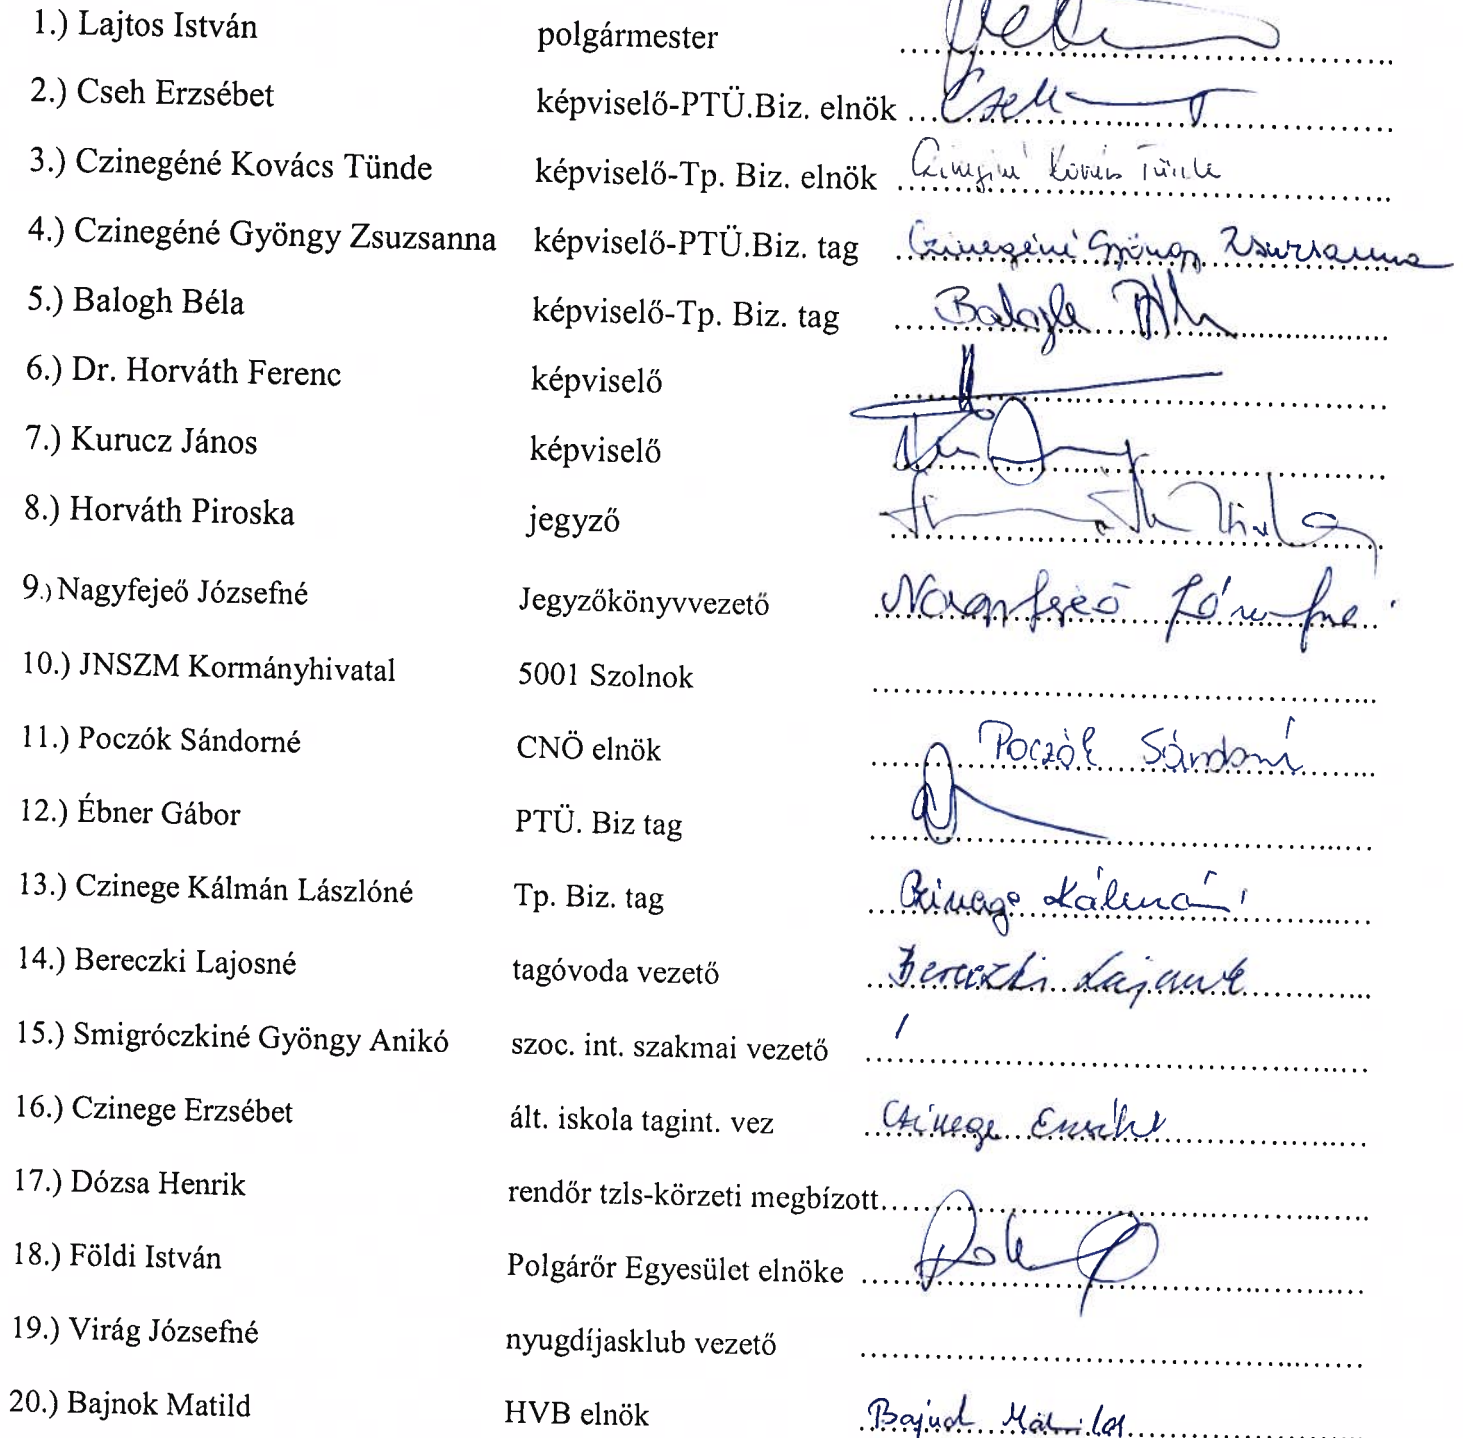 1.) Lajtos István polgármester ........................................
2.) Cseh Erzsébet képviselő-PTÜ.Biz. elnök ... Cseh ........................................
3.) Czinegéné Kovács Tünde képviselő-Tp. Biz. elnök Czinegéné Kovács Tünde ........................................
4.) Czinegéné Gyöngy Zsuzsanna képviselő-PTÜ.Biz. tag Czinegéné Gyöngy Zsuzsanna
5.) Balogh Béla képviselő-Tp. Biz. tag Balogh Béla ........................................
6.) Dr. Horváth Ferenc képviselő ........................................
7.) Kurucz János képviselő ........................................
8.) Horváth Piroska jegyző ........................................
9.) Nagyfejeő Józsefné Jegyzőkönyvvezető Nagyfejeő Józsefné
10.) JNSZM Kormányhivatal 5001 Szolnok ........................................
11.) Poczók Sándorné CNÖ elnök Poczók Sándorné
12.) Ébner Gábor PTÜ. Biz tag ........................................
13.) Czinege Kálmán Lászlóné Tp. Biz. tag Czinege Kálmán
14.) Bereczki Lajosné tagóvoda vezető Bereczki Lajosné
15.) Smigróczkiné Gyöngy Anikó szoc. int. szakmai vezető ........................................
16.) Czinege Erzsébet ált. iskola tagint. vez Czinege Erzsébet
17.) Dózsa Henrik rendőr tzls-körzeti megbízott ........................................
18.) Földi István Polgárőr Egyesület elnöke ........................................
19.) Virág Józsefné nyugdíjasklub vezető ........................................
20.) Bajnok Matild HVB elnök Bajnok Matild